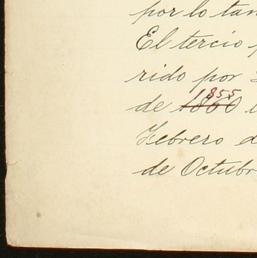 por lo tan
El tercio
rido por
1855
de 1860
Febrero d
de Octubr